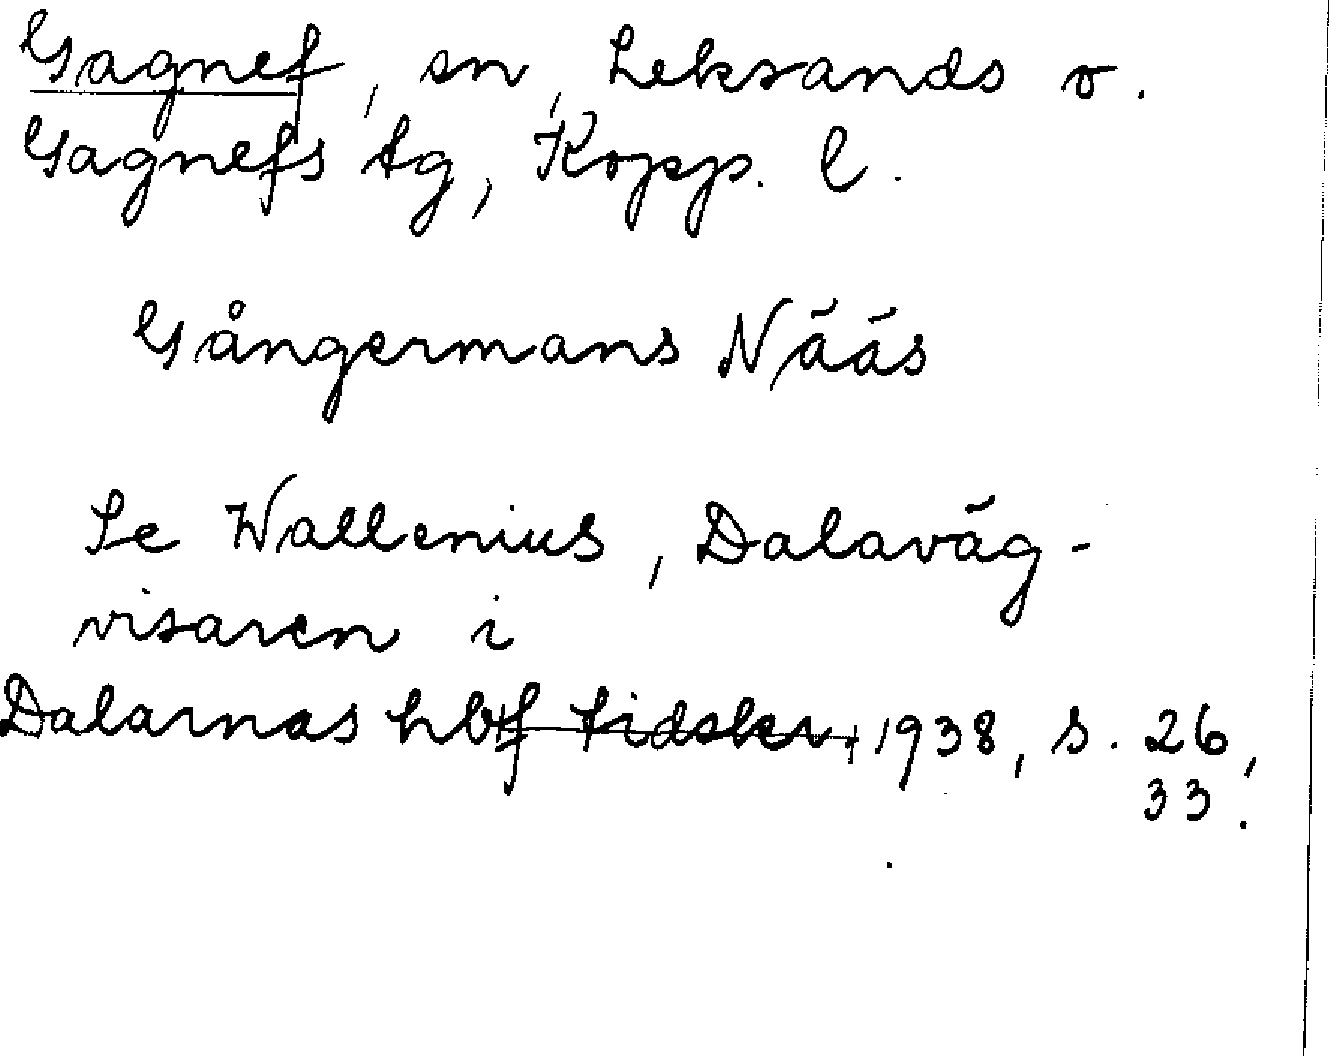 Gagnef, sn, Leksands o.
Gagnefs tg, Kopp. l.
Gångermans Nääs
Se Wallenius, Dalaväg-
visaren i
Dalarnas hbf tidskr. 1938, s. 26,
33.